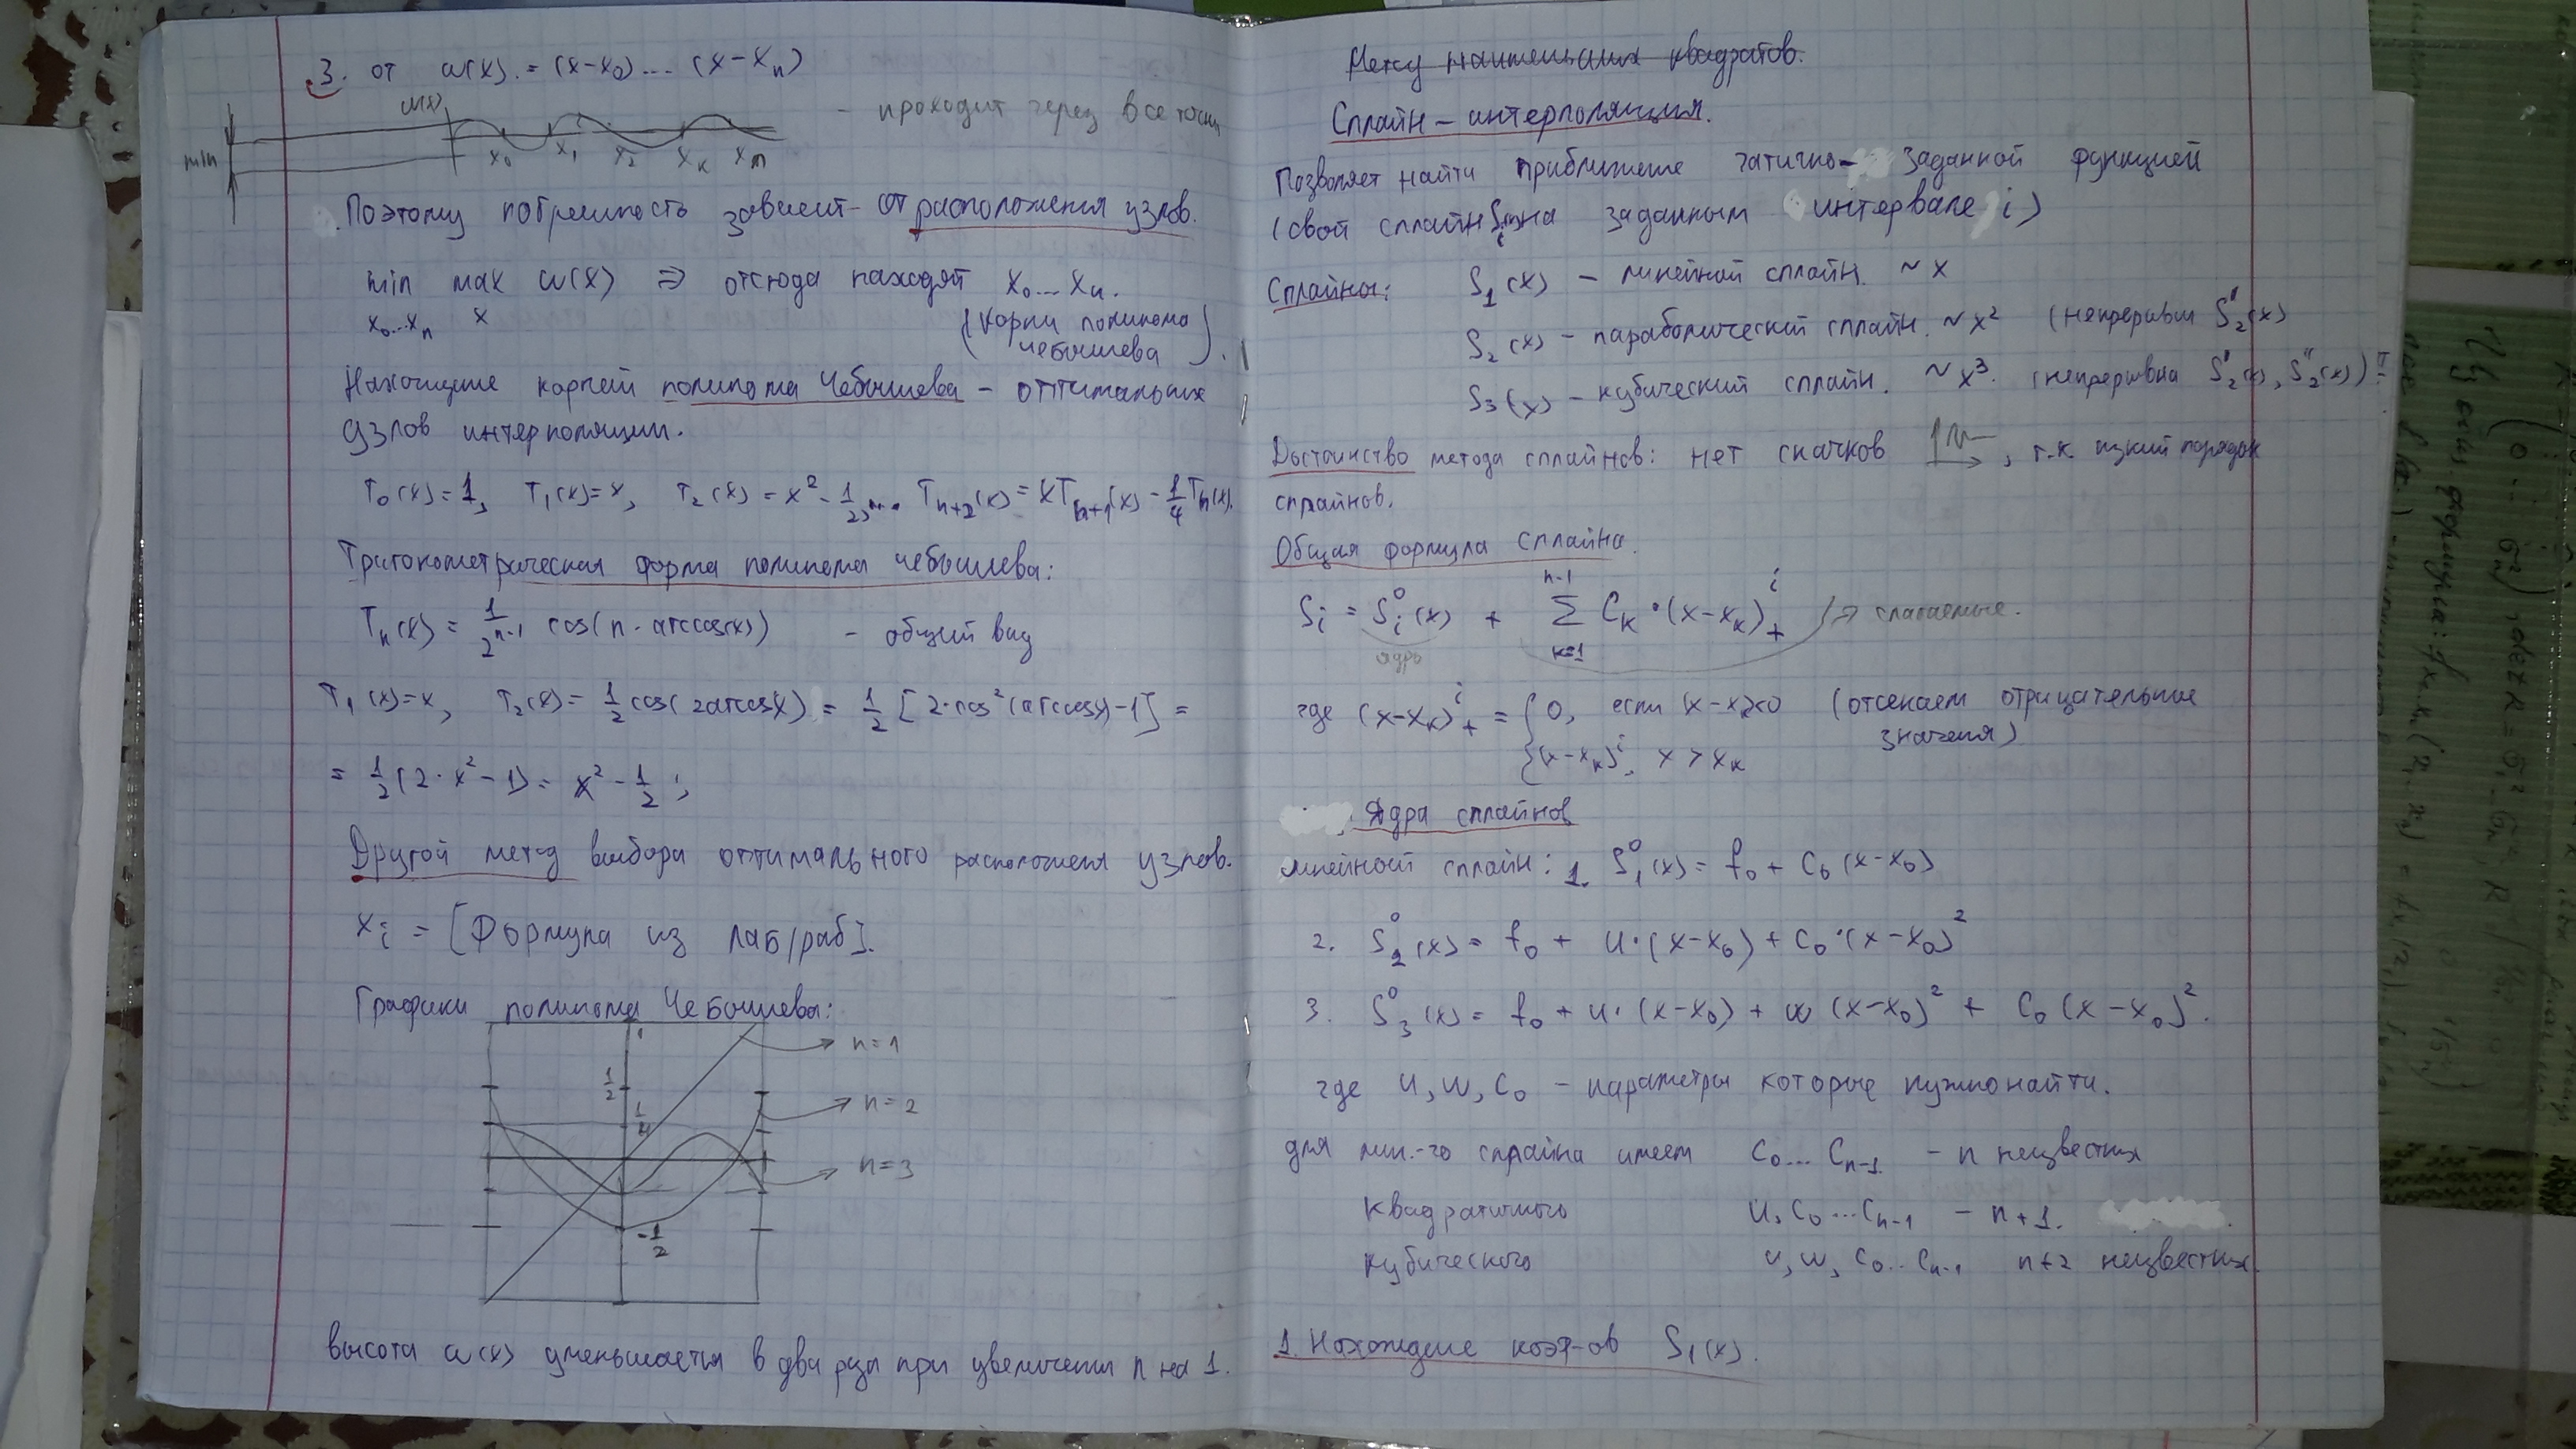 3. от ω(x) = (x-x₀)...(x-xₙ)
ω(x)
min
x₀ x₁ x₂ xₖ xₙ
- проходит через все точ
Поэтому погрешность зависит от расположения узлов.
min max ω(x) ⇒ отсюда находят x₀...xₙ.
x₀...xₙ x
(корни полинома
чебышева)
Нахождение корней полинома Чебышева - оптимальных
узлов интерполяции.
T₀(x)=1, T₁(x)=x, T₂(x)=x²-1/2, ... Tₙ₊₂(x)=xTₙ₊₁(x)-1/4Tₙ(x).
Тригонометрическая форма полинома чебышева:
Tₙ(x) = 1/2ⁿ⁻¹ cos(n·arccos(x)) - общий вид
T₁(x)=x, T₂(x)=1/2 cos(2arccosx) = 1/2[2·cos²(arccosx)-1] =
= 1/2(2·x²-1) = x²-1/2;
Другой метод выбора оптимального расположения узлов.
xᵢ = [Формула из лаб/раб].
Графики полинома Чебышева:
1
1/2
1/4
-1/2
n=1
n=2
n=3
высота ω(x) уменьшается в два раза при увеличении n на 1.
Метод наименьших квадратов.
Сплайн-интерполяция.
Позволяет найти приближение заданной функцией
(свой сплайн на заданном интервале i)
Сплайны: S₁(x) - линейный сплайн. ~x
S₂(x) - параболический сплайн. ~x² (непрерывн S₂'(x)
S₃(x) - кубический сплайн. ~x³. (непрерывна S₂'(x), S₂''(x))
Достоинство метода сплайнов: нет скачков, т.к. низкий порядок
сплайнов.
Общая формула сплайна.
Sᵢ = Sᵢ⁰(x) + Σ Cₖ·(x-xₖ)₊ⁱ
n-1
k=1
ядро
слагаемые.
где (x-xₖ)₊ⁱ = {0, если x-xₖ<0 (отсекаем отрицательные
{(x-xₖ)ⁱ, x>xₖ значения)
Ядра сплайнов
линейный сплайн: 1. S₁⁰(x) = f₀ + C₀(x-x₀)
2. S₂⁰(x) = f₀ + u·(x-x₀) + C₀·(x-x₀)²
3. S₃⁰(x) = f₀ + u·(x-x₀) + ω(x-x₀)² + C₀(x-x₀)².
где u, w, C₀ - параметры которые нужно найти.
для лин-го сплайна имеем C₀...Cₙ₋₁ - n неизвестных
квадратичного u, C₀...Cₙ₋₁ - n+1.
кубического u, w, C₀...Cₙ₋₁ n+2 неизвестных.
1. Нахождение коэф-ов S₁(x).